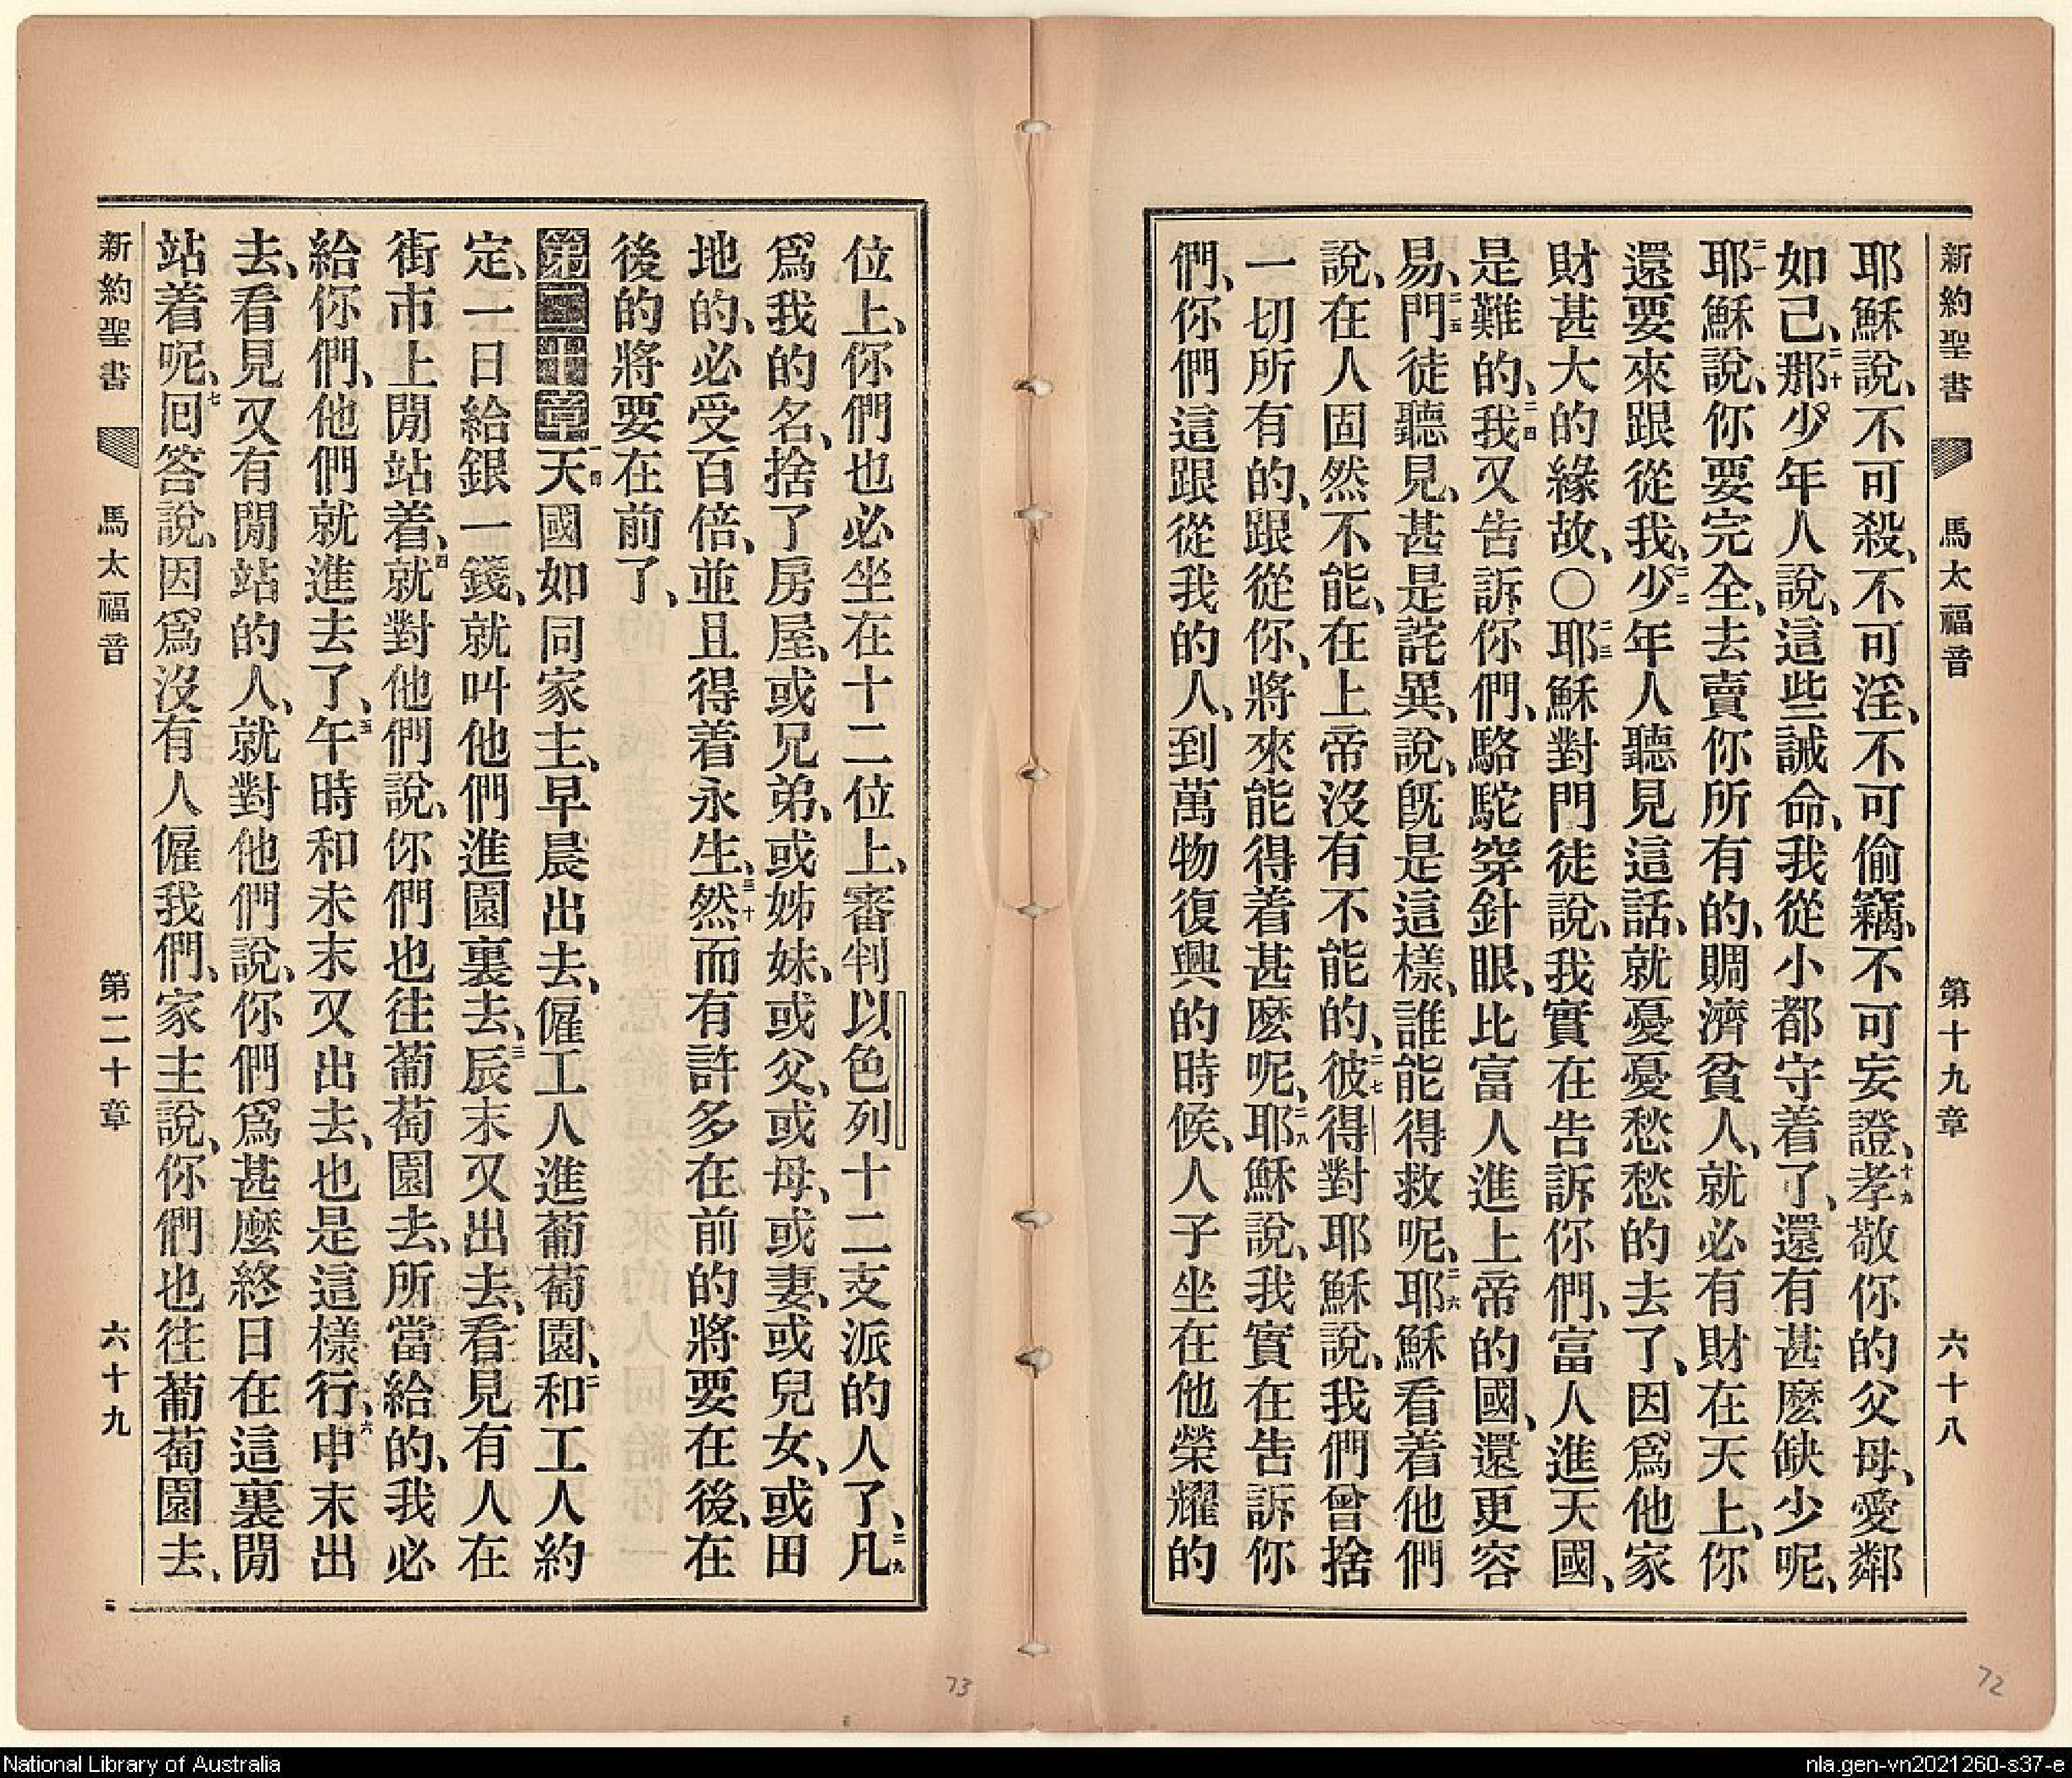 新約聖書 馬太福音 第十九章 六十八
耶穌說、不可殺、不可淫、不可偷竊、不可妄證、十九孝敬你的父母、愛鄰
如己、二十那少年人說、這些誡命、我從小都守着了、還有甚麽缺少呢、
二一耶穌說、你要完全、去賣你所有的、賙濟貧人、就必有財在天上、你
還要來跟從我、二二少年人聽見這話、就憂憂愁愁的去了、因爲他家
財甚大的緣故、〇二三耶穌對門徒說、我實在告訴你們、富人進天國、
是難的、二四我又告訴你們、駱駝穿針眼、比富人進上帝的國、還更容
易、二五門徒聽見、甚是詫異、說、旣是這樣、誰能得救呢、二六耶穌看着他們
說、在人固然不能、在上帝沒有不能的、二七彼得對耶穌說、我們曾捨
一切所有的、跟從你、將來能得着甚麽呢、二八耶穌說、我實在告訴你
們、你們這跟從我的人、到萬物復興的時候、人子坐在他榮耀的
位上、你們也必坐在十二位上、審判以色列十二支派的人了、二九凡
爲我的名、捨了房屋、或兄弟、或姊妹、或父、或母、或妻、或兒女、或田
地的、必受百倍、並且得着永生、三十然而有許多在前的將要在後、在
後的將要在前了、
第二十章 一天國如同家主、早晨出去、僱工人進葡萄園、二和工人約
定、一日給銀一錢、就叫他們進園裏去、三辰末又出去、看見有人在
街市上閒站着、四就對他們說、你們也往葡萄園去、所當給的、我必
給你們、他們就進去了、五午時和未末又出去、也是這樣行、六申末出
去、看見又有閒站的人、就對他們說、你們爲甚麽終日在這裏閒
站着呢、七囘答說、因爲沒有人僱我們、家主說、你們也往葡萄園去、
新約聖書 馬太福音 第二十章 六十九
72
73
National Library of Australia
nla.gen-vn2021260-s37-e